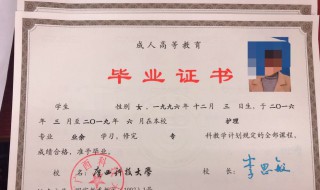 成人高等教育
毕业证书
学生 性别 女，一九九六年 十二月 三 日生，于 二〇一六
年 三 月至 二〇一九 年 六 月在本校 护理
专业 业余 学习，修完 专 科教学计划规定的全部课程，
成绩合格，准予毕业。
校 名： 科技大学 校 长：